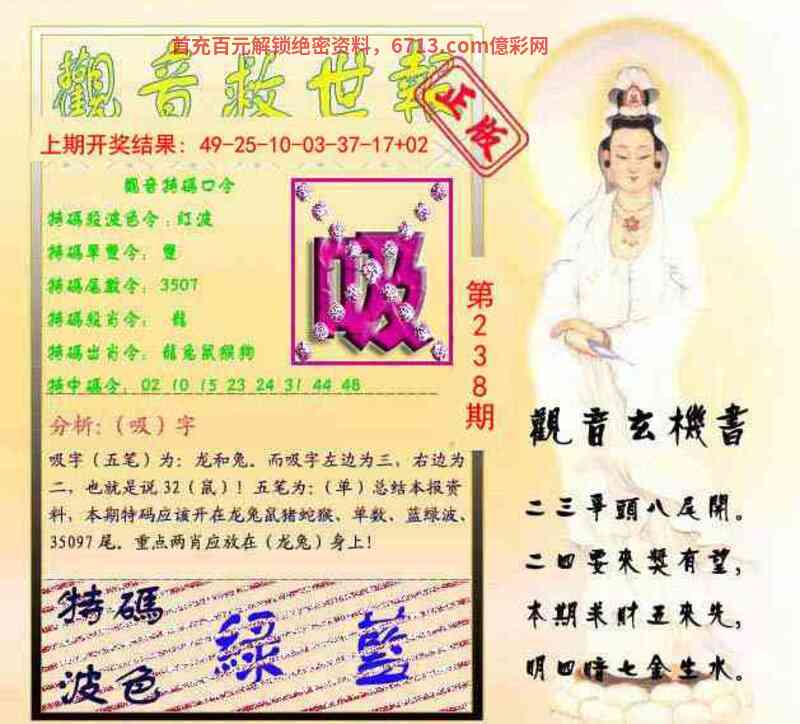 首充百元解锁绝密资料，6713.com億彩网
觀音救世報
正版
上期开奖结果：49-25-10-03-37-17+02
觀音特碼口令
特碼殺波色令：红波
特碼單雙令：雙
特碼尾數令：3507
特碼殺肖令：龍
特碼出肖令：龍兔鼠猴狗
特中碼令：02 10 15 23 24 31 44 48
吸
第238期
分析：（吸）字
吸字（五笔）为：龙和兔．而吸字左边为三，右边为
二，也就是说32（鼠）！五笔为：（单）总结本报资
料，本期特码应该开在龙兔鼠猪蛇猴、单数、蓝绿波、
35097尾．重点两肖应放在（龙兔）身上！
特碼
波色
綠 藍
觀音玄機書
二三單頭八尾開。
二四要來獎有望，
本期求財五來先，
明四暗七金生水。